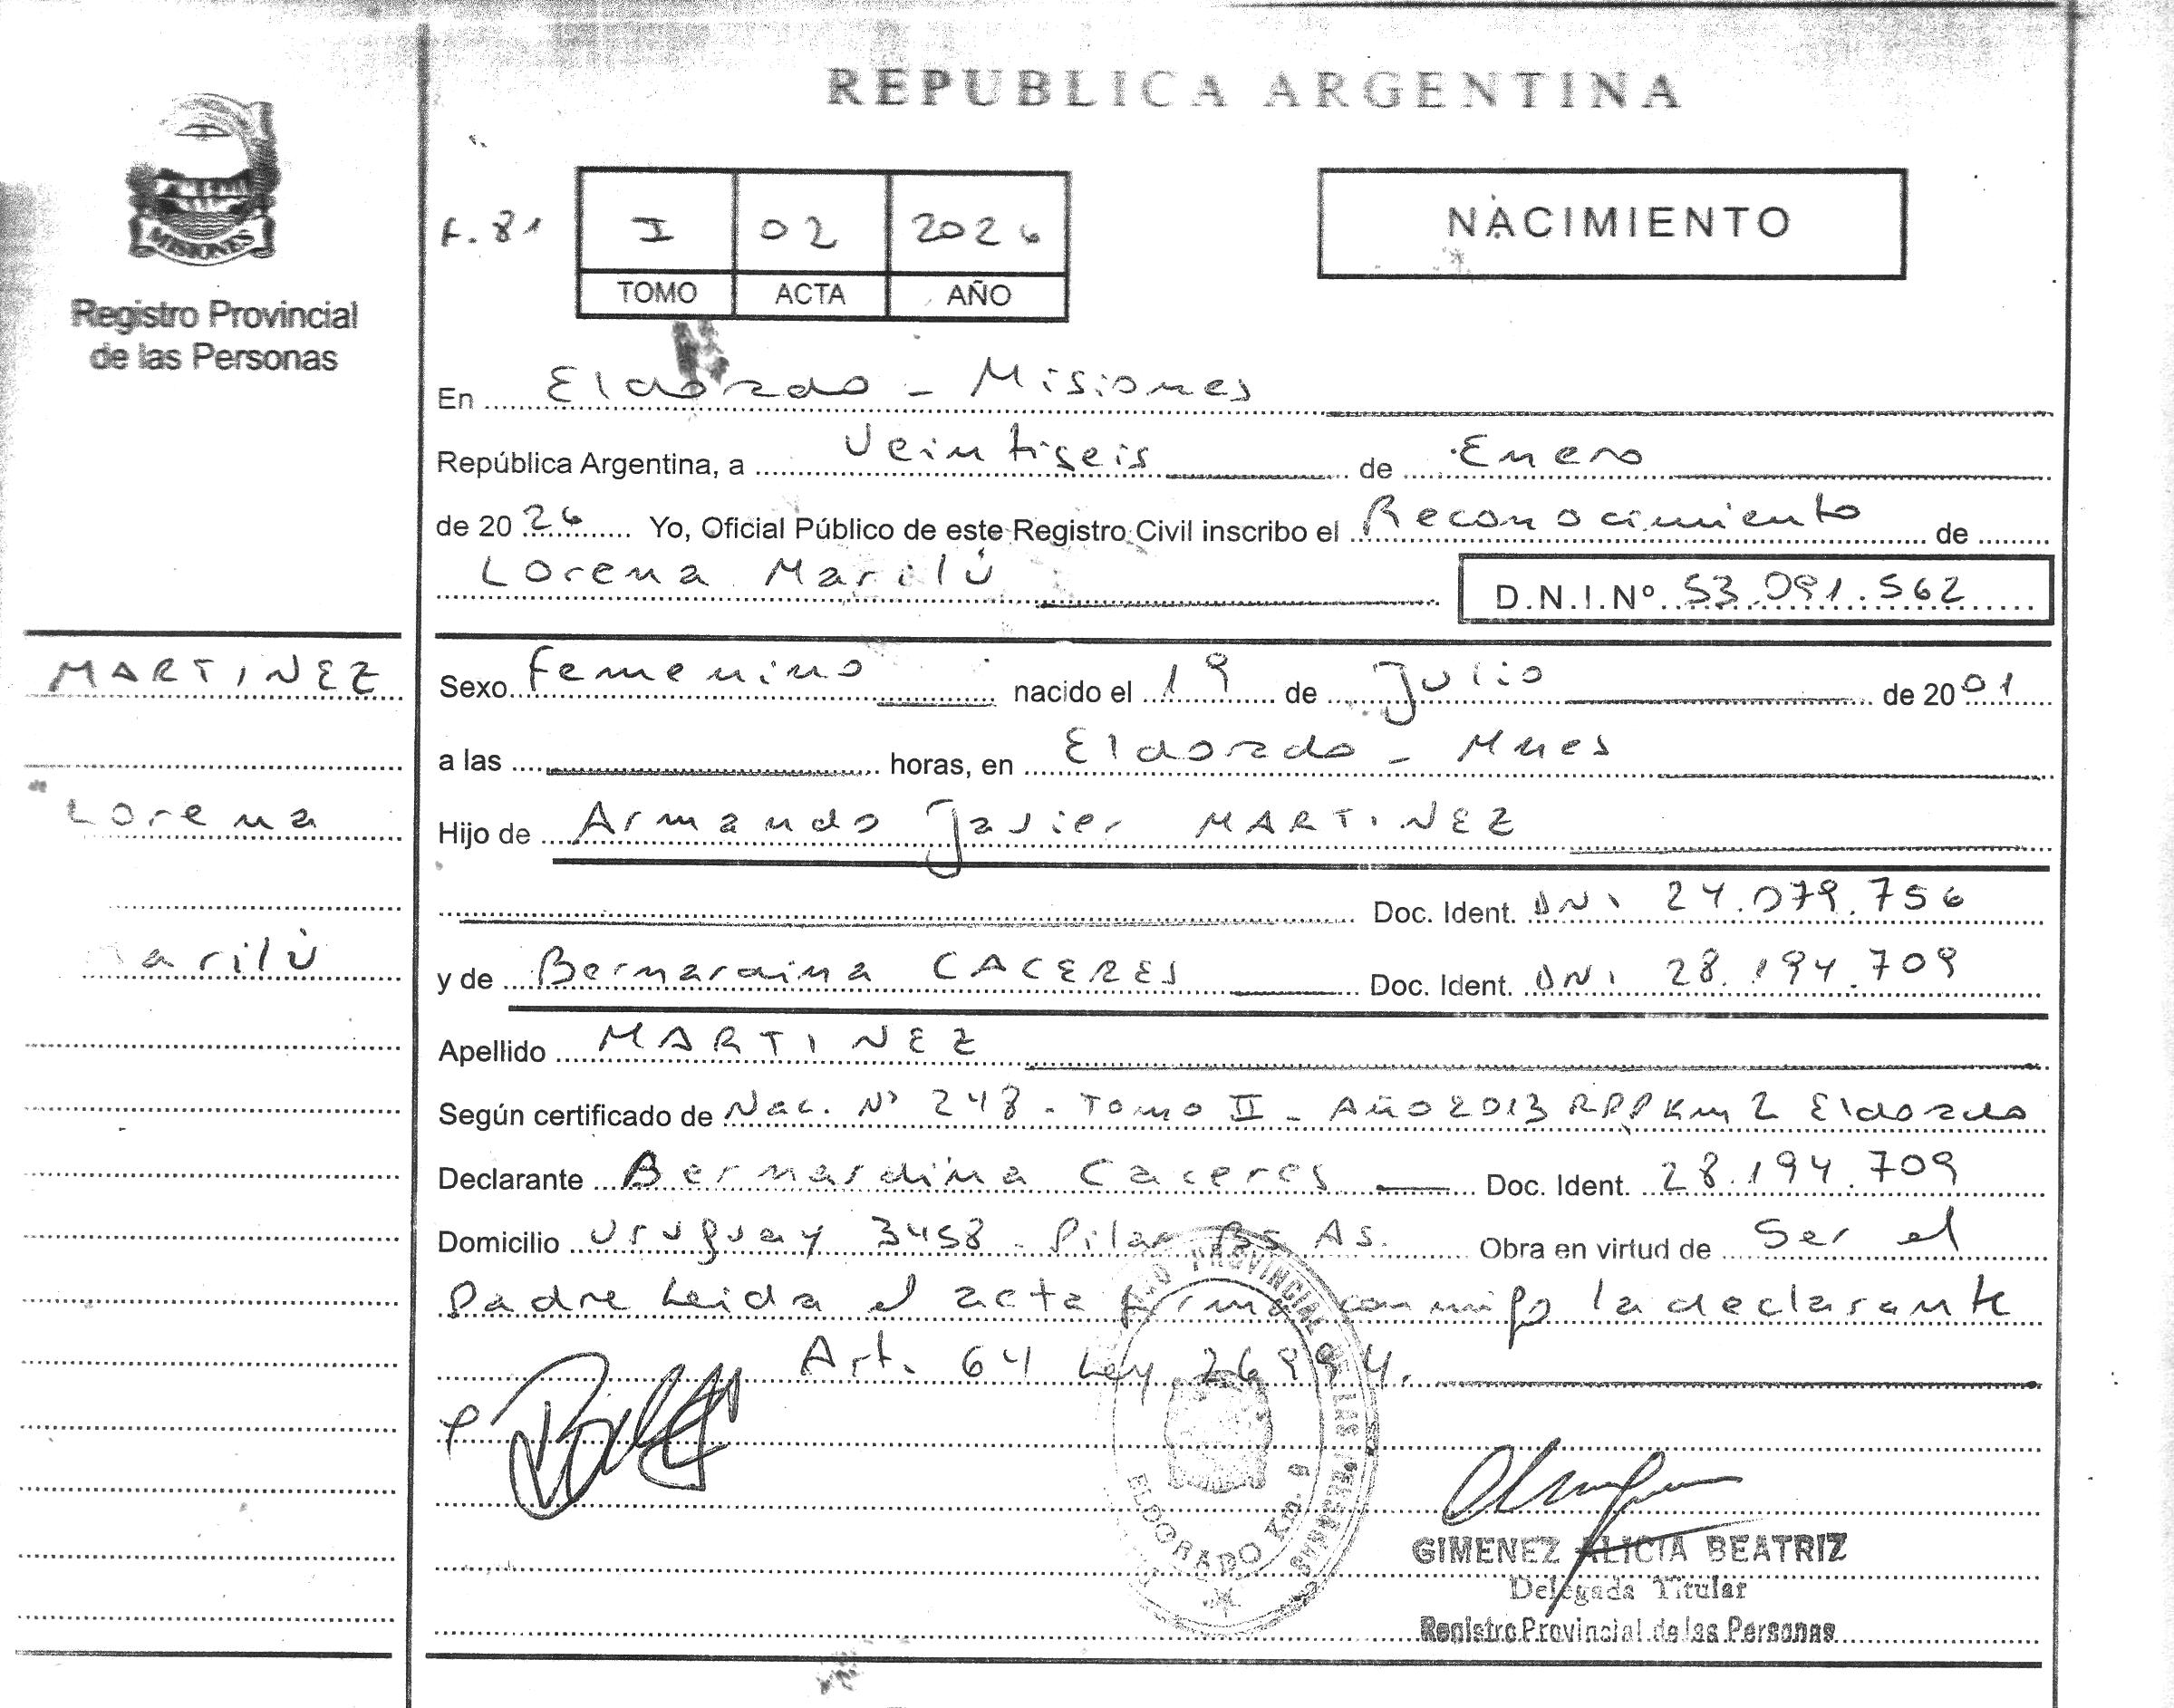 REPUBLICA ARGENTINA
MISIONES
Registro Provincial
de las Personas
F. 81
I 02 2026
TOMO ACTA AÑO
NACIMIENTO
En Eldorado - Misiones
República Argentina, a Veintiseis de Enero
de 20 26 Yo, Oficial Público de este Registro Civil inscribo el Reconocimiento de
Lorena Marilú D.N.I.Nº 53.091.562
MARTINEZ
Lorena
Marilú
Sexo Femenino nacido el 19 de Julio de 20 01
a las horas, en Eldorado - Mnes
Hijo de Armando Javier MARTINEZ
Doc. Ident. DNI 24.079.756
y de Bernardina CACERES Doc. Ident. DNI 28.194.709
Apellido MARTINEZ
Según certificado de Nac. Nº 248 - Tomo II - Año 2013 RPP Km 2 Eldorado
Declarante Bernardina Caceres Doc. Ident. 28.194.709
Domicilio Uruguay 3458 - Pilar Bs As. Obra en virtud de Ser el
Padre Leida el acta firma conmigo la declarante
Art. 64 Ley 26994.
REGISTRO PROVINCIAL DE LAS PERSONAS
ELDORADO Km. 9
GIMENEZ ALICIA BEATRIZ
Delegada Titular
Registro Provincial de las Personas